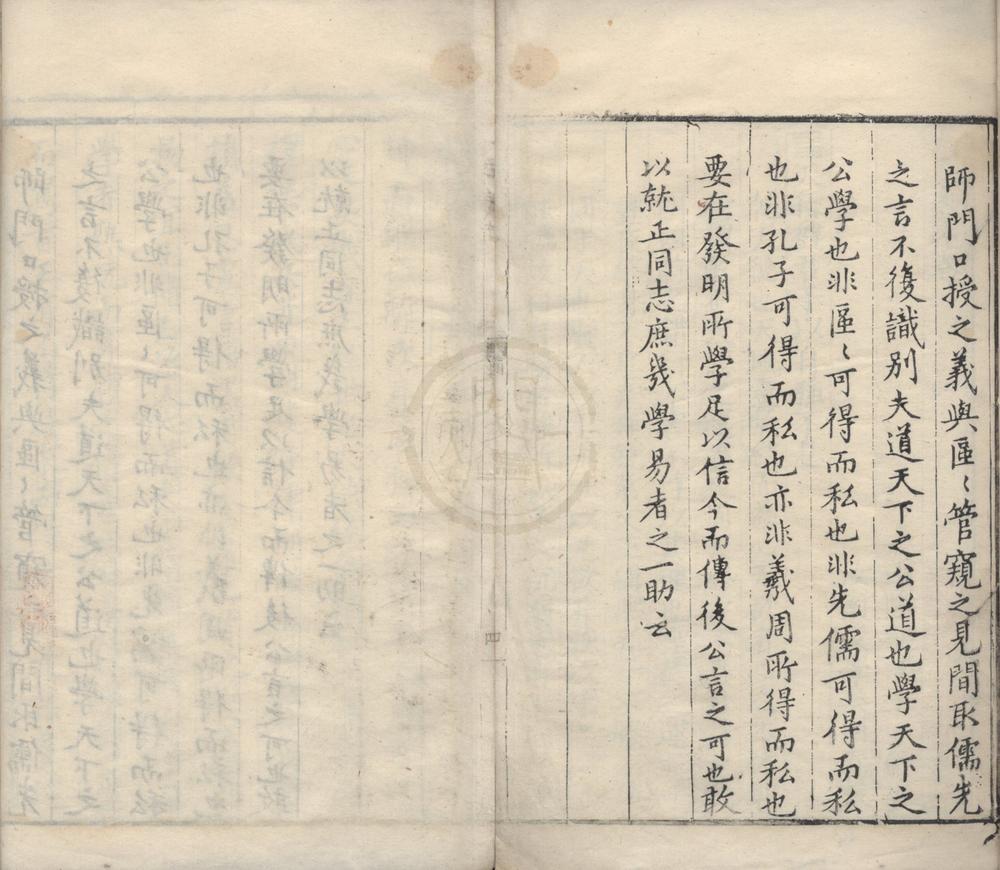 師門口授之義與區〻管窺之見間取儒先
之言不復識别夫道天下之公道也學天下之
公學也非區〻可得而私也非先儒可得而私
也非孔子可得而私也亦非羲周所得而私也
要在發明所學足以信今而傳後公言之可也敢
以就正同志庶幾學易者之一助云